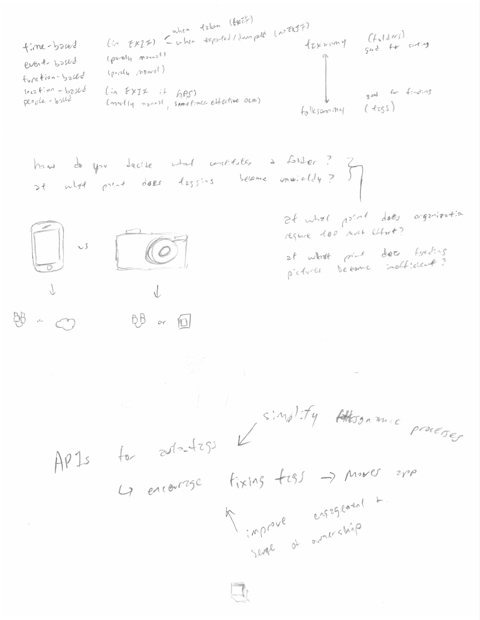 when taken (EXIF)
time-based (in EXIF) when
event-based (purely manual)
function-based (purely manual)
location-based (in EXIF if GPS)
people-based (mostly manual, sometimes effective
taxonomy (folders)
good for
folksonomy (tags)
good for finding
how do you decide what constitutes a folder?
at what point does tagging become unwieldy?
at what point does organization
require too much effort?
at what point does finding
pictures become inefficient?
vs
or
simplify processes
APIs for auto-tags
↳ encourage fixing tags → moves app
improve engagement +
sense of ownership